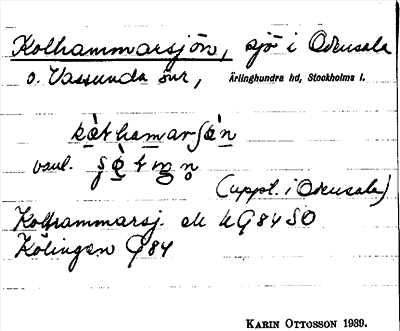 Kolhammarsjön, sjö i Odensala
o. Vassunda snr, Ärlinghundra hd, Stockholms l.
vanl.
(uppt. i Odensala)
Kolhammarsj. ek UG84SO
Kölingen G84
KARIN OTTOSSON 1939.